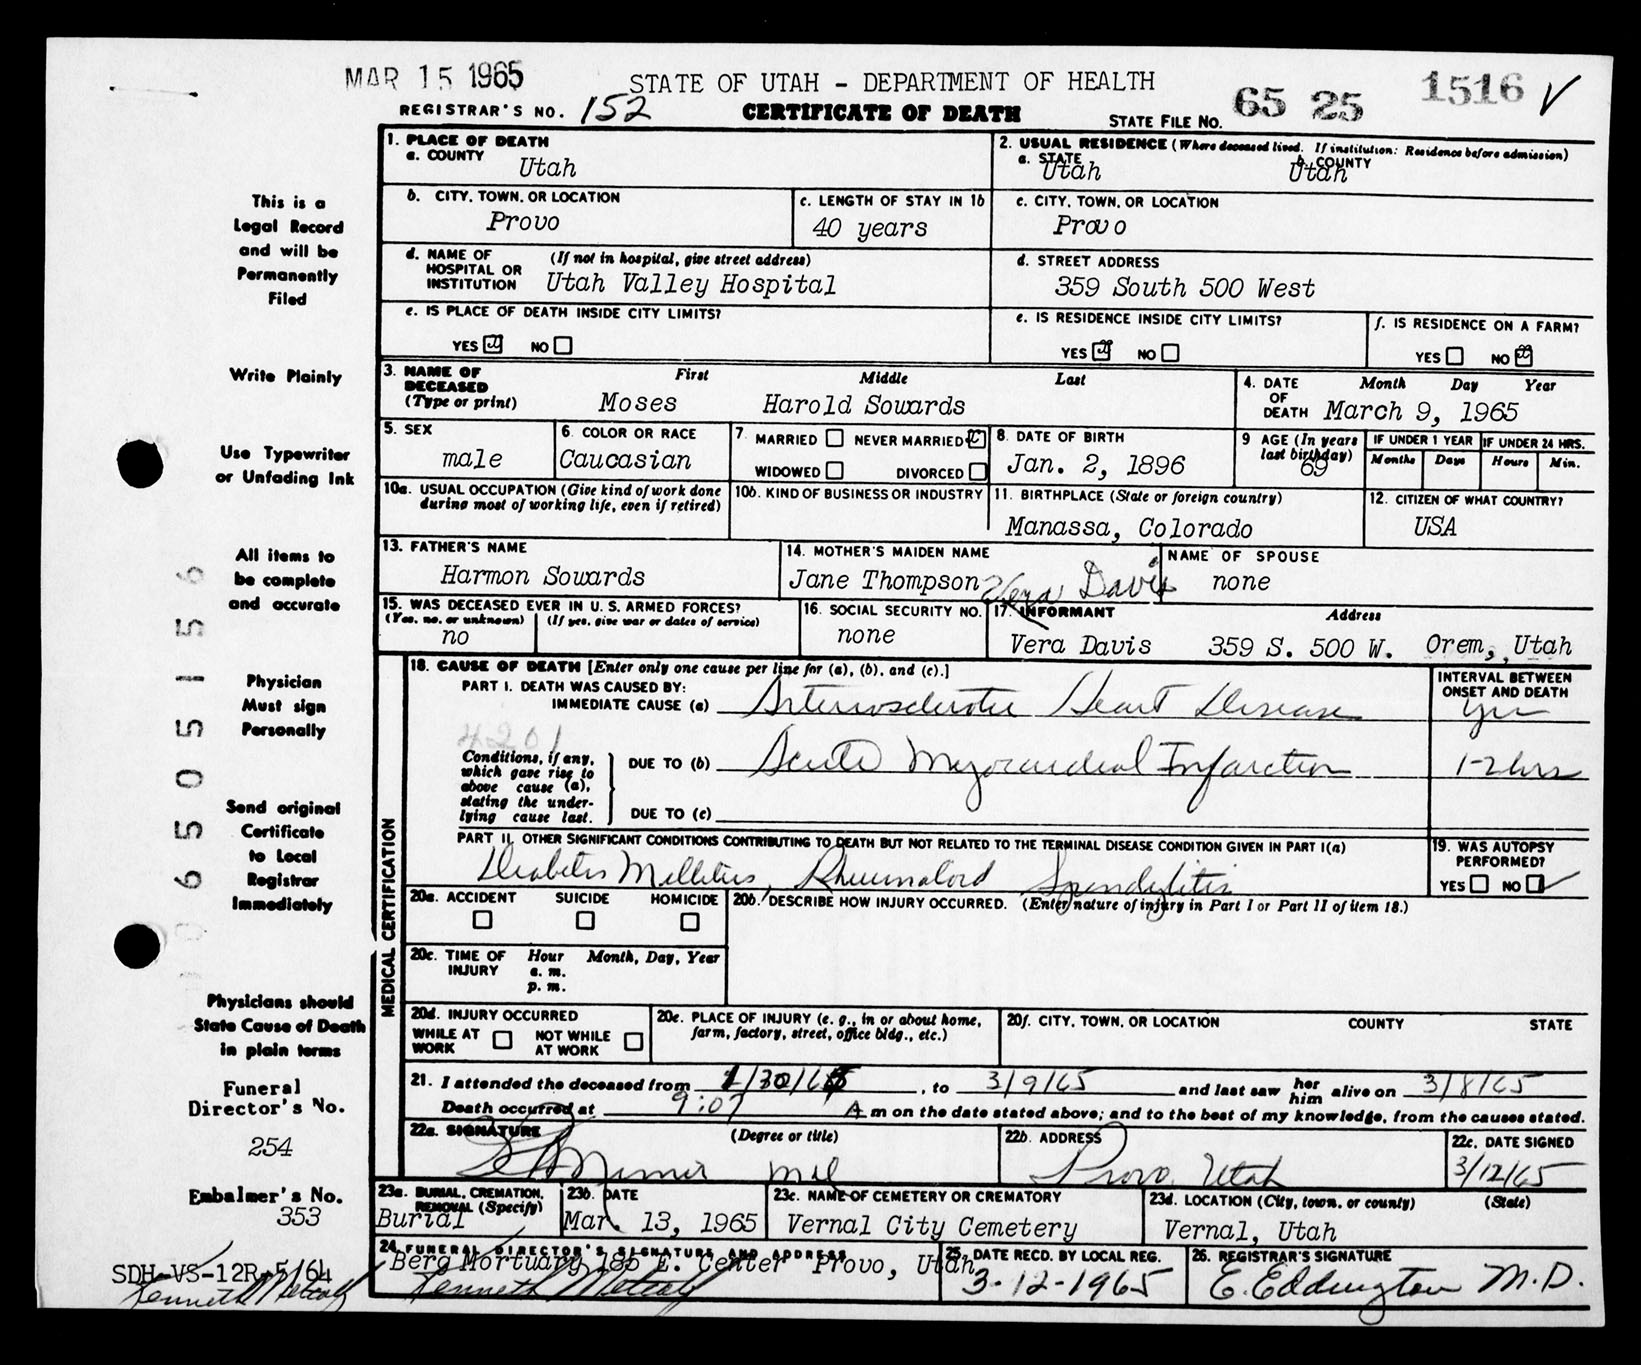 MAR 15 1965
STATE OF UTAH - DEPARTMENT OF HEALTH
1516 ✓
REGISTRAR'S NO. 152
CERTIFICATE OF DEATH
STATE FILE NO. 65 25
1. PLACE OF DEATH
a. COUNTY Utah
2. USUAL RESIDENCE (Where deceased lived. If institution: Residence before admission)
a. STATE Utah b. COUNTY Utah
b. CITY, TOWN, OR LOCATION Provo
c. LENGTH OF STAY IN 1b 40 years
c. CITY, TOWN, OR LOCATION Provo
d. NAME OF HOSPITAL OR INSTITUTION (If not in hospital, give street address)
Utah Valley Hospital
d. STREET ADDRESS
359 South 500 West
e. IS PLACE OF DEATH INSIDE CITY LIMITS?
YES x NO
e. IS RESIDENCE INSIDE CITY LIMITS?
YES x NO
f. IS RESIDENCE ON A FARM?
YES NO x
3. NAME OF DECEASED (Type or print)
First Middle Last
Moses Harold Sowards
4. DATE OF DEATH Month Day Year
March 9, 1965
5. SEX male
6. COLOR OR RACE Caucasian
7. MARRIED NEVER MARRIED x
WIDOWED DIVORCED
8. DATE OF BIRTH Jan. 2, 1896
9 AGE (In years last birthday) 69
IF UNDER 1 YEAR Months Days
IF UNDER 24 HRS. Hours Min.
10a. USUAL OCCUPATION (Give kind of work done during most of working life, even if retired)
10b. KIND OF BUSINESS OR INDUSTRY
11. BIRTHPLACE (State or foreign country)
Manassa, Colorado
12. CITIZEN OF WHAT COUNTRY?
USA
13. FATHER'S NAME
Harmon Sowards
14. MOTHER'S MAIDEN NAME
Jane Thompson
NAME OF SPOUSE
none
Vera Davis
15. WAS DECEASED EVER IN U. S. ARMED FORCES?
(Yes, no, or unknown) (If yes, give war or dates of service)
no
16. SOCIAL SECURITY NO.
none
17. INFORMANT Address
Vera Davis 359 S. 500 W. Orem, Utah
MEDICAL CERTIFICATION
18. CAUSE OF DEATH [Enter only one cause per line for (a), (b), and (c).]
PART I. DEATH WAS CAUSED BY:
IMMEDIATE CAUSE (a) Arteriosclerotic Heart Disease
INTERVAL BETWEEN ONSET AND DEATH
yrs
4201
Conditions, if any, which gave rise to above cause (a), stating the underlying cause last.
DUE TO (b) Acute Myocardial Infarction 1-2 hrs
DUE TO (c)
PART II. OTHER SIGNIFICANT CONDITIONS CONTRIBUTING TO DEATH BUT NOT RELATED TO THE TERMINAL DISEASE CONDITION GIVEN IN PART I(a)
Diabetes Mellitus, Rheumatoid Spondylitis
19. WAS AUTOPSY PERFORMED?
YES NO ✓
20a. ACCIDENT SUICIDE HOMICIDE
20b. DESCRIBE HOW INJURY OCCURRED. (Enter nature of injury in Part I or Part II of item 18.)
20c. TIME OF INJURY Hour Month, Day, Year
a. m.
p. m.
20d. INJURY OCCURRED
WHILE AT WORK NOT WHILE AT WORK
20e. PLACE OF INJURY (e. g., in or about home, farm, factory, street, office bldg., etc.)
20f. CITY, TOWN, OR LOCATION COUNTY STATE
21. I attended the deceased from 1/30/65, to 3/9/65 and last saw her him alive on 3/8/65
Death occurred at 9:07 A m on the date stated above; and to the best of my knowledge, from the causes stated.
22a. SIGNATURE (Degree or title)
22b. ADDRESS
Provo, Utah
22c. DATE SIGNED
3/12/65
23a. BURIAL, CREMATION, REMOVAL (Specify)
Burial
23b. DATE
Mar. 13, 1965
23c. NAME OF CEMETERY OR CREMATORY
Vernal City Cemetery
23d. LOCATION (City, town, or county) (State)
Vernal, Utah
24. FUNERAL DIRECTOR'S SIGNATURE AND ADDRESS
Berg Mortuary 185 E. Center Provo, Utah
Kenneth Metcalf
25. DATE RECD. BY LOCAL REG.
3-12-1965
26. REGISTRAR'S SIGNATURE
E. Eddington M.D.
This is a
Legal Record
and will be
Permanently
Filed
Write Plainly
Use Typewriter
or Unfading Ink
All items to
be complete
and accurate
Physician
Must sign
Personally
Send original
Certificate
to Local
Registrar
Immediately
Physicians should
State Cause of Death
in plain terms
Funeral
Director's No.
254
Embalmer's No.
353
SDH-VS-12R-5/64
Kenneth Metcalf